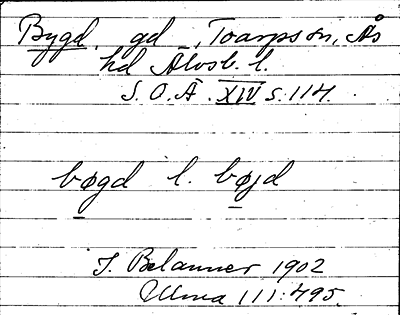 Bygd gd, Toarpson, Ås
hd Älvsb. l.
S. O. Ä. XIV s. 114.
bøgd l. bøjd
J. Belanner 1902
Ulma 111:495.